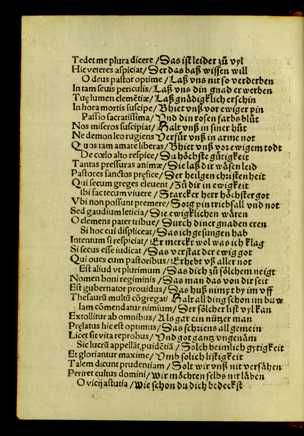 Tedet me plura dicere / Das ist leider zu vyl
Hic veteres aspiciat / Der das baß wissen will
O deus pastor optime / Laß vns nit so verderben
In tam seuis periculis / Laß vns din gnad erwerben
Tuę lumen clementiæ / Laß gnådigklich erschin
In hora mortis suscipe / Bhiet vnß vor ewiger pin
Passio sacratissima / Vnd din rosen farbs blůt
Nos miseros suscipiat / Halt vnß in siner hůt
Ne demon leo rugiens / Versür vnß in arme not
Quos tam amate liberas / Bhiet vnß vor ewigem todt
De cœlo alto respice / Du höchste gütigkeit
Tantas pressuras animæ / Die laß dir wåsen leid
Pastores sanctos prefice / Der heilgen christenheit
Qui secum greges eleuent / Zů dir in ewigkeit
Ibi fac tecum viuere / Starcker herr höchster got
Vbi non possunt premere / Sorg pin triebsall vnd not
Sed gaudium leticia / Die ewigklichen wåren
O clemens pater tribue / Durch diner gnaden eren
Si hoc cui displiceat / Das ich gesungen hab
Intentum si respiciat / Er merckt wol was ich klag
Si secus esse iudicat / Das verstat der ewig got
Qui oues cum pastoribus / Erhebt vß aller not
Est aliud vt plurimum / Das dich zů sölchem neigt
Nomen boni regiminis / Das man das von dir seit
Est gubernator prouidus / Das huß nimpt by im vff
Thesaurū multū cōgregat / Halt all ding schon im huw
Iam cōmendatur nimium / Der sölcher list vyl kan
Extollitur ab omnibus / Als gar ein nützer man
Prelatus hic est optimus / Das schriens all gemein
Licet sit vita reprobus / Vnd got gantz vngenåm
Sic lucrū appellāt, puidētiā / Solch heimlich gytigkeit
Et gloriantur maxime / Vmb solich listigkeit
Talem dicunt prudentiam / Solt wir vnß nit versåhen
Periret cultus domini / Wir möchten selbs nit låben
O vicij astutia / Wie schon du dich bedeckst